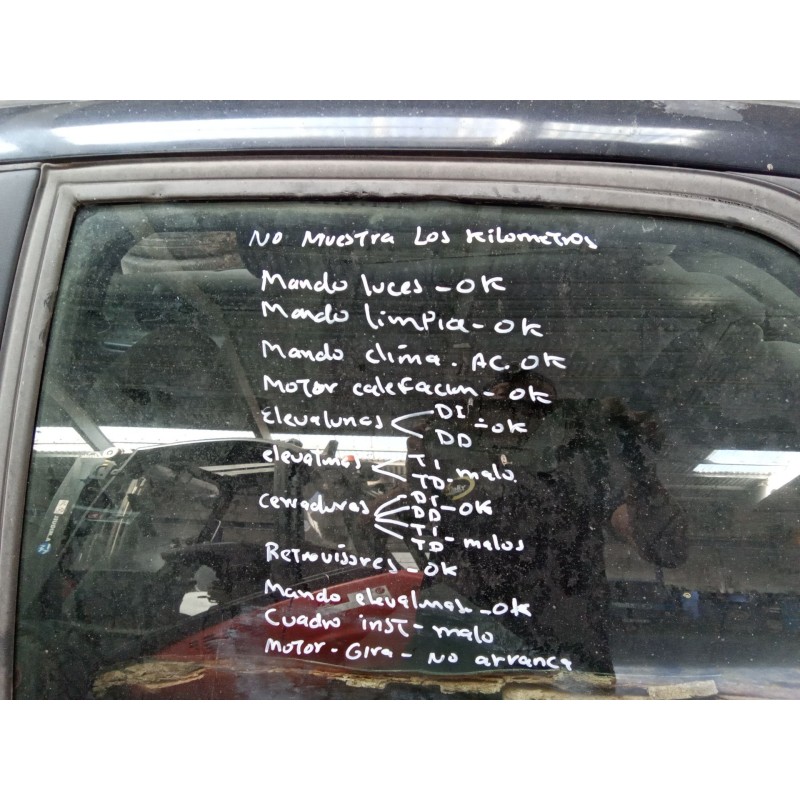 NO MUESTRA LOS KILOMETROS
Mando luces - OK
Mando limpia - OK
Mando clima. AC OK
MOTOR calefacun - OK
Elevalunas < DI DD - OK
elevalunas < TI TD - malo
cerraduras DI DD - OK TI TD - malos
RETROVISORES - OK
Mando elevalunas - OK
Cuadro inst - malo
MOTOR - GIRA - NO arranca